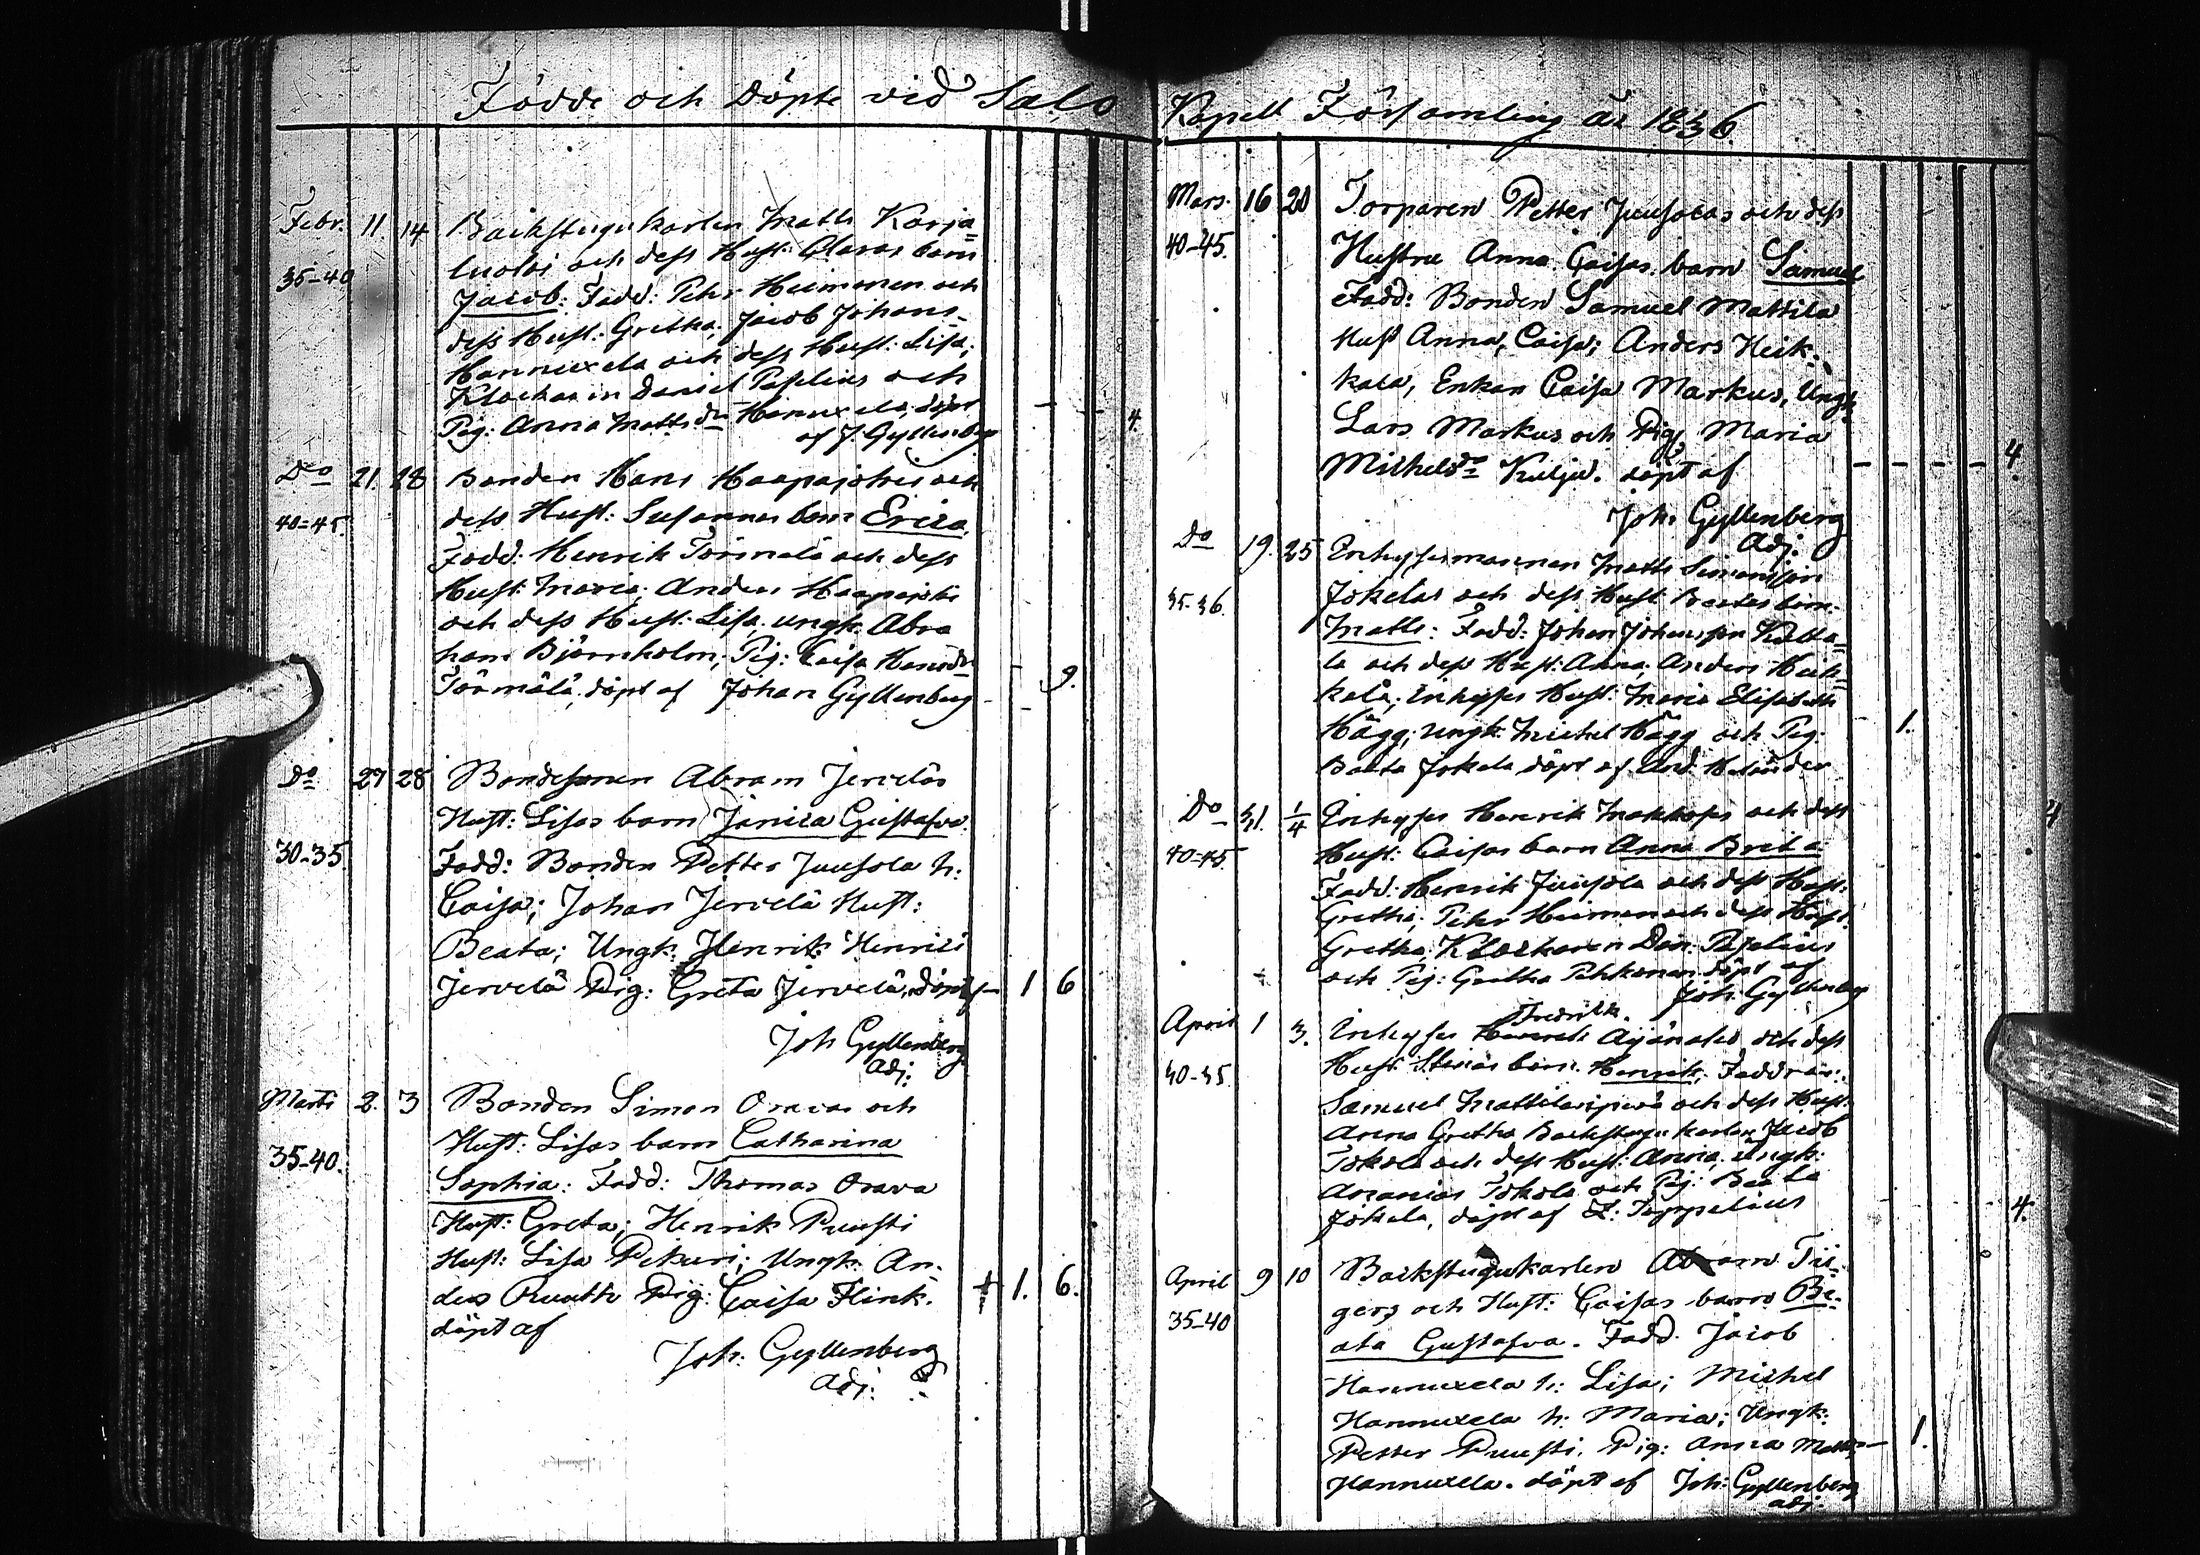 Födde och Döpte vid Salo
Febr. 11. 14 Backstugukarlen Matts Karja=
luotos och dess Hust: Claras barn
35-40 Jacob: Fadd: Pehr Heimonen och
dess Hust: Gretha; Jacob Johans-
Hannuxela och dess Hust: Lisa;
Klockaren Daniel Pazelius och
Pig: Anna Mattsdr Hannuxela, döpt
af J. Gyllenberg - - 4.
Do 21. 28 Bonden Hans Haapajokis och
40=45. dess Hust: Susannas barn Erica
Fadd: Henrik Törmälä och dess
Hust: Maria; Anders Haapajoki
och dess Hust: Lisa, ungk: Abra
ham Björnholm; Pig: Caisa Hansdr
Törmälä, döpt af Johan Gyllenberg - - 9.
Do 27 28 Bondesonen Abram Jerveläs
Hust: Lisas barn Janica Gustafva.
30-35. Fadd: Bonden Petter Juusola h:
Caisa; Johan Jervelä Hust:
Beata; Ungk: Henrik Henrici
Jervelä Pig: Greta Jervelä, döpt af - 1 6
Joh Gyllenberg
Adj:
Marti 2. 3 Bonden Simon Oravas och
Hust: Lisas barn Catharina
35-40. Sophia: Fadd: Thomas Orava
Hust: Greta; Henrik Puusti
Hust: Lisa Pekuri; Ungk: An-
ders Ruutti Pig: Caisa Flink. † 1. 6.
döpt af
Joh: Gyllenberg
Adj:
Kapell Församling år 1836
Mars. 16 20 Torparen Petter Juusolas och dess
40-45. Hustru Anna Caisas barn Samuel
Fadd: Bonden Samuel Mattila
Hust Anna, Caisa; Anders Heik-
kala, Enkan Caisa Markus, Ungk
Lars Markus och Pig, Maria
Michelsdr Kulju. döpt af - - - - 4.
Joh: Gyllenberg
Adj:
Do 19. 25 Inhysesmannen Matts Simonsson
35-36. Jokelas och dess Hust Beatas barn
Matts: Fadd: Johan Johansson Katta=
la och dess Hust: Anna; Anders Heik=
kala; Inhyses Hust: Maria Elisabeth
Hägg; ungk: Michel Hägg och Pig: - 1.
Beata Jokela döpt af And. Helander
Do 31. 1/4 Inhyses Henrik och dess 4
40=45. Hust: Caisas barn Anna Brita
Fadd: Henrik Juusola och dess Hust:
Gretha; Pehr Heimonen och dess Hust:
Gretha, Klockaren Dan: Pazelius
och Pig: Gretha Pihkanen döpt af
Joh: Gyllenberg
Fredrik.
April 1 3. Inhyses Henrik och dess
40-45. Hust: barn Henrik, Faddrar:
Samuel och dess Hust:
Anna Gretha Backstugu karlen Jacob
Jokela och dess Hust: Anna, ungk:
Ananias Jokela och Pig: Beata
Jokela, döpt af Z: Toppelius - - - - 4.
April 9 10 Backstugukarlen Abram Tii-
gers och Hust: Caisas barn Be-
35-40 ata Gustafva. Fadd. Jacob
Hannuxela h: Lisa; Michel
Hannuxela h: Maria; Ungk:
Petter Puusti. Pig: Anna Matts- - 1.
Hannuxela. döpt af Joh: Gyllenberg
adj: